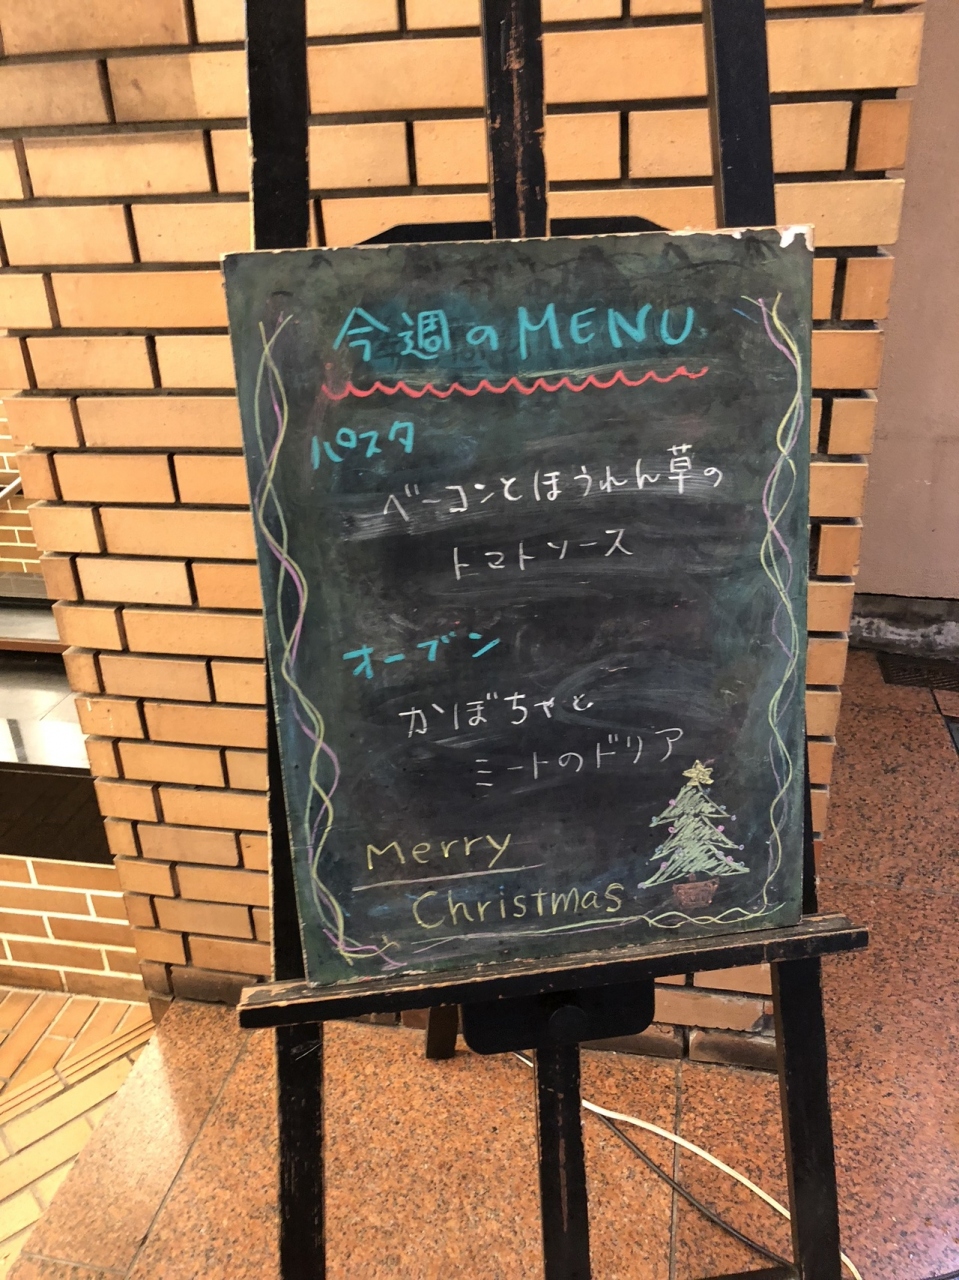 今週のMENU
パスタ
ベーコンとほうれん草の
トマトソース
オーブン
かぼちゃと
ミートのドリア
Merry
Christmas